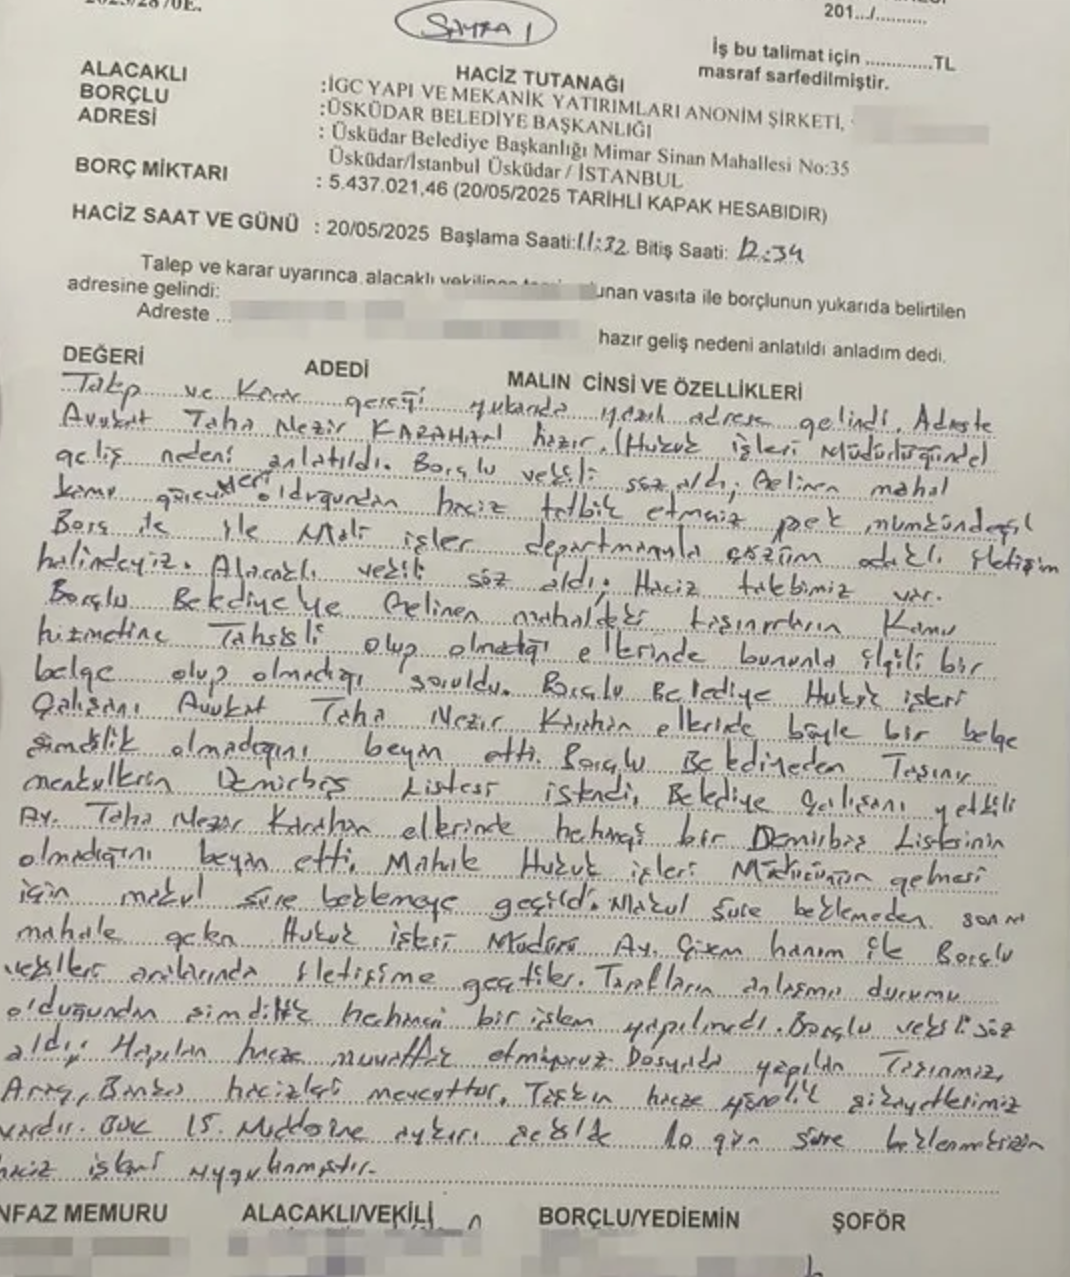 SAYFA 1
201.../..........
İş bu talimat için .............TL
masraf sarfedilmiştir.
HACİZ TUTANAĞI
ALACAKLI :İGC YAPI VE MEKANİK YATIRIMLARI ANONİM ŞİRKETİ,
BORÇLU :ÜSKÜDAR BELEDİYE BAŞKANLIĞI
ADRESİ : Üsküdar Belediye Başkanlığı Mimar Sinan Mahallesi No:35
Üsküdar/İstanbul Üsküdar / İSTANBUL
BORÇ MİKTARI : 5.437.021,46 (20/05/2025 TARİHLİ KAPAK HESABIDIR)
HACİZ SAAT VE GÜNÜ : 20/05/2025 Başlama Saati:11:32 Bitiş Saati: 12:34
Talep ve karar uyarınca alacaklı vekilince unan vasıta ile borçlunun yukarıda belirtilen
adresine gelindi:
Adreste ... hazır geliş nedeni anlatıldı anladım dedi.
DEĞERİ ADEDİ MALIN CİNSİ VE ÖZELLİKLERİ
Talep ve Karar gereği yukarıda yazılı adrese gelindi. Adreste
Avukat Taha Nezir KARAHAN hazır. (Hukuk işleri Müdürlüğünde)
geliş nedeni anlatıldı. Borçlu vekili söz aldı; Gelinen mahal
kamu yeri olduğundan haciz tatbik etmeniz pek mümkün değil
Borç ile Mali işler departmanıyla çözüm odaklı iletişim
halindeyiz. Alacaklı vekili söz aldı; Haciz talebimiz var.
Borçlu Belediyeye Gelinen mahaldeki taşınırların Kamu
hizmetine Tahsisli olup olmadığı ellerinde bununla ilgili bir
belge olup olmadığı soruldu. Borçlu Belediye Hukuk işleri
Çalışanı Avukat Taha Nezir Karahan ellerinde böyle bir belge
şimdilik olmadığını beyan etti. Borçlu Belediyeden Taşınır
menkullerin Demirbaş Listesi istendi, Belediye Çalışanı yetkili
Av. Taha Nezir Karahan ellerinde herhangi bir Demirbaş Listesinin
olmadığını beyan etti, Mahale Hukuk işleri Müdürünün gelmesi
için makul süre beklemeye geçildi. Makul süre beklemeden sonra
mahale gelen Hukuk işleri Müdürü Av. Çisem hanım ile Borçlu
vekilleri aralarında iletişime geçtiler. Tarafların anlaşma durumu
olduğundan şimdilik herhangi bir işlem yapılmadı. Borçlu vekili söz
aldı; Yapılan hacze muvafakat etmiyoruz. Dosyada yapılan Taşınmaz,
Araç, Banka hacizleri mevcuttur, Taşkın hacze yönelik şikayetlerimiz
vardır. 15. Maddesine aykırı şekilde 10 gün süre beklenmeksizin
haciz işlemi uygulanmıştır.
NFAZ MEMURU ALACAKLI/VEKİLİ BORÇLU/YEDİEMİN ŞOFÖR